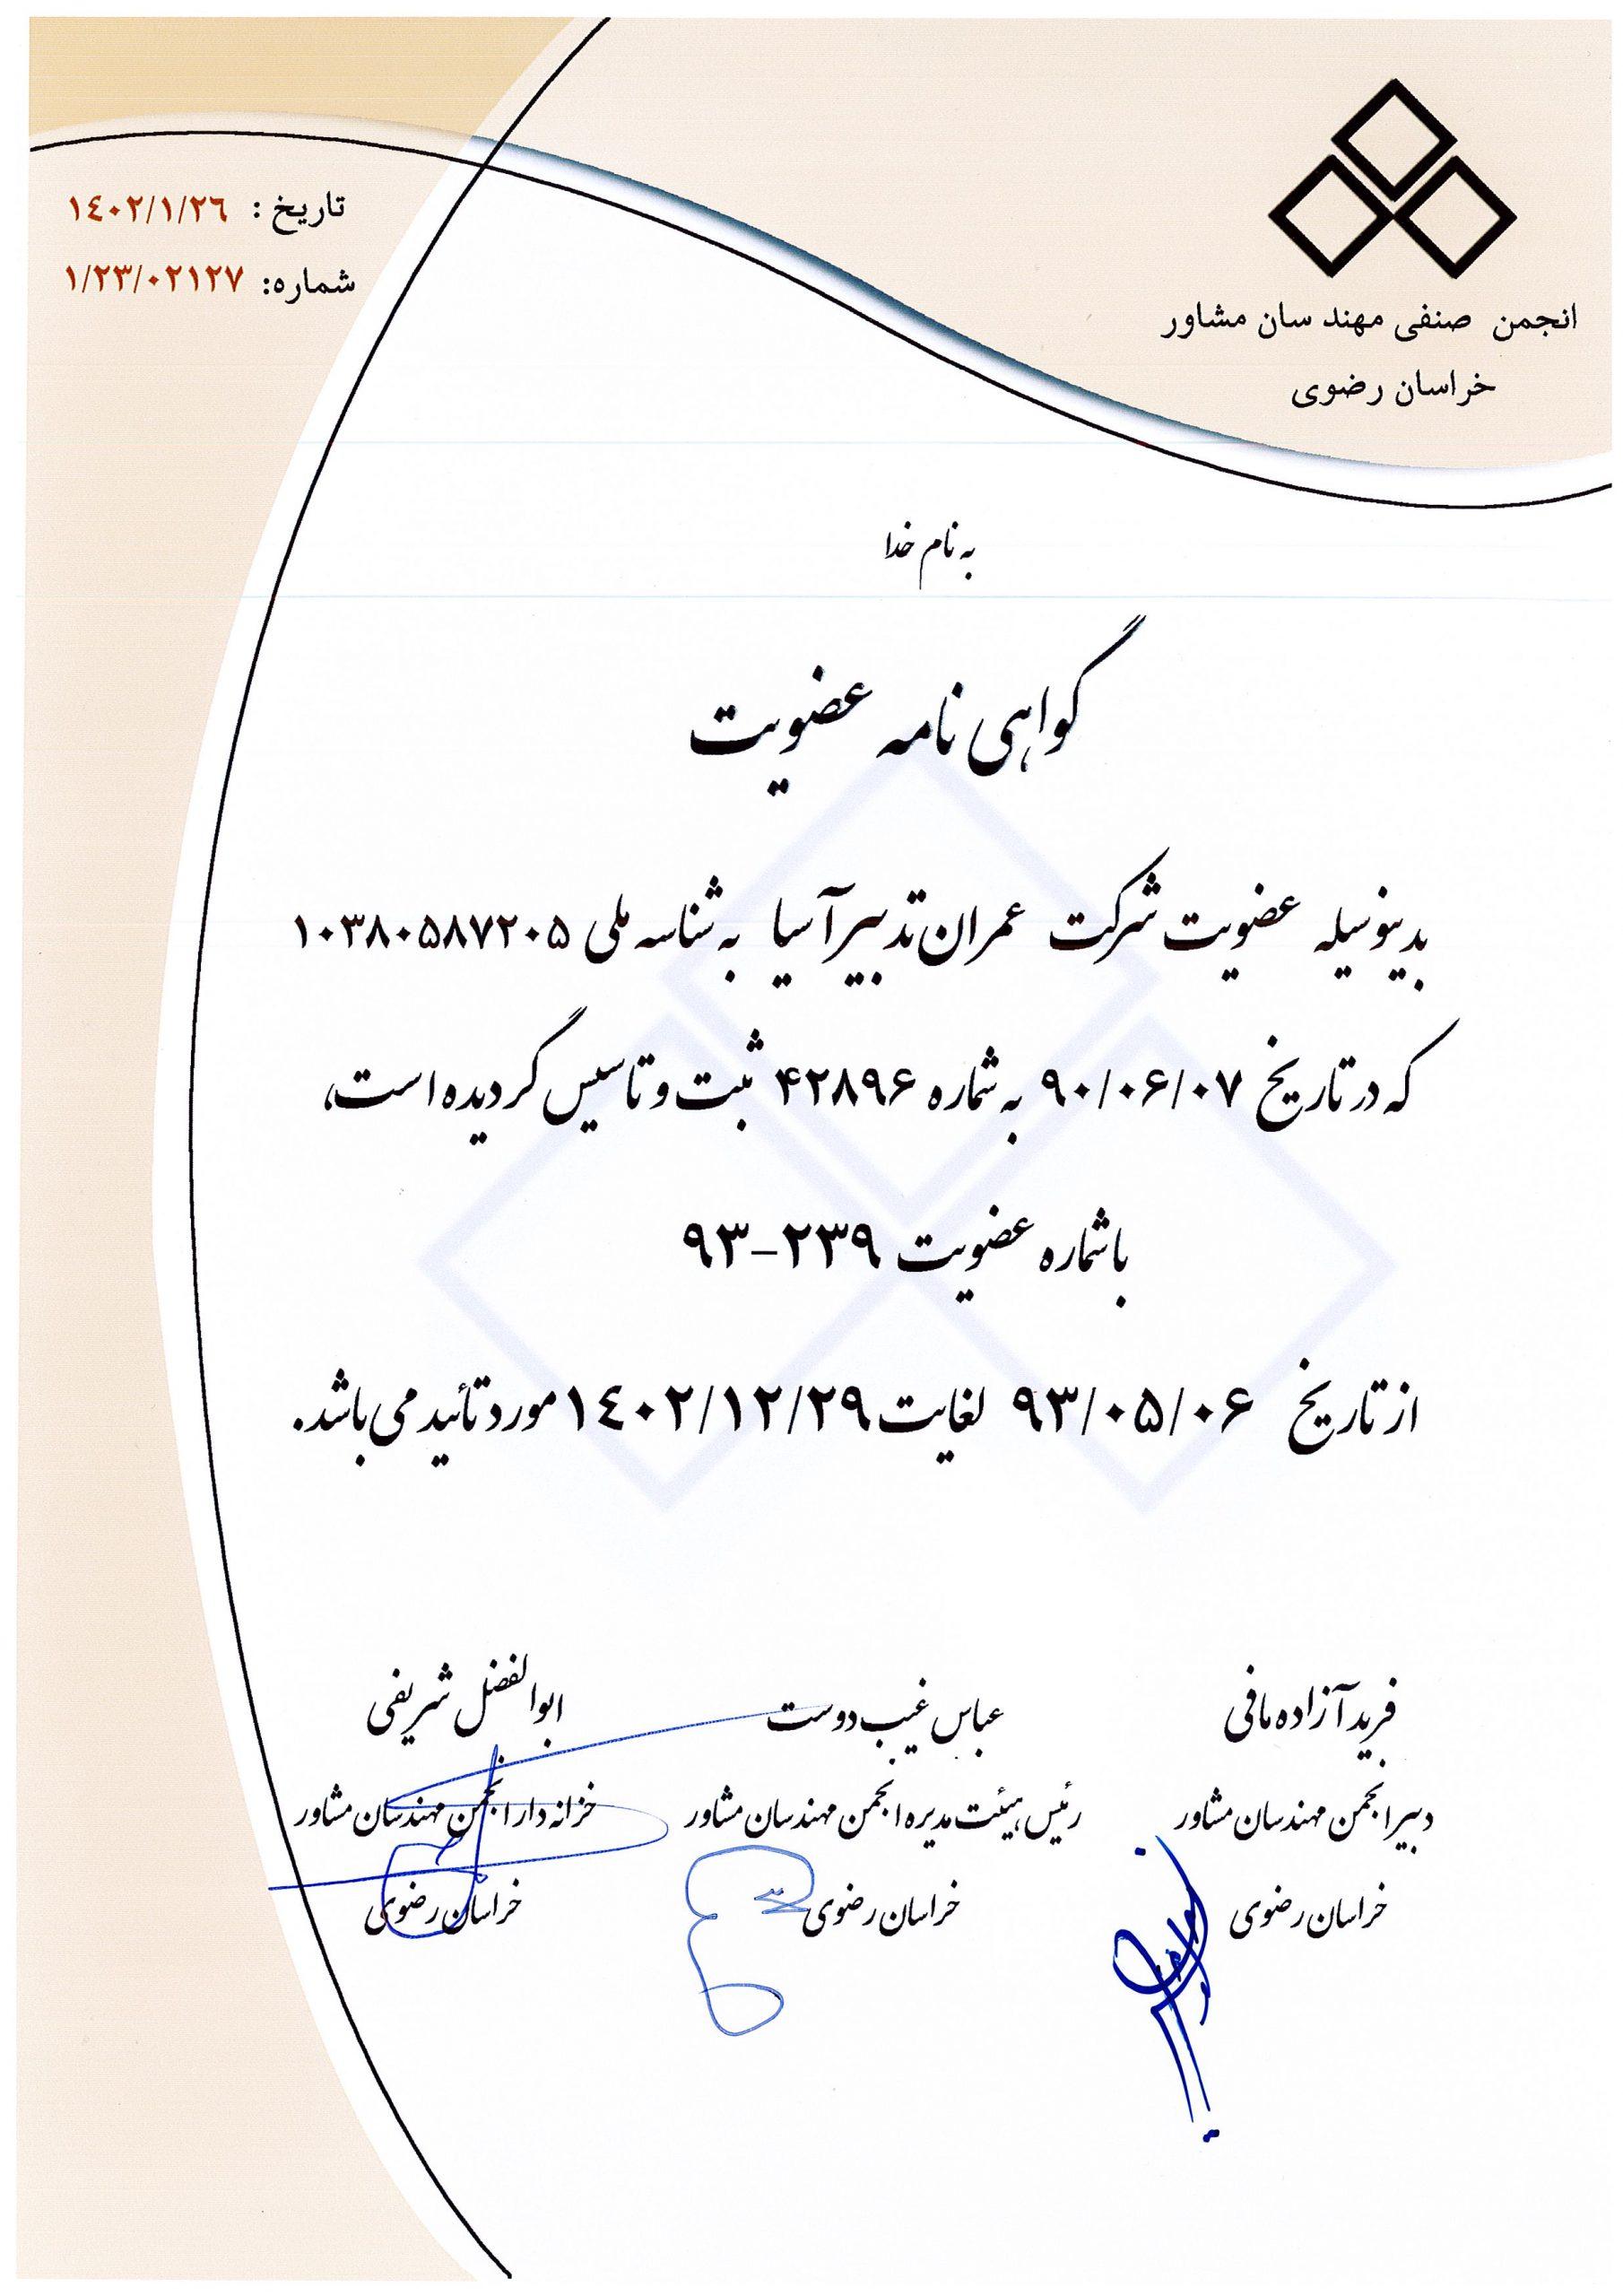 انجمن صنفی مهندسان مشاور
خراسان رضوی
تاریخ: ١٤٠٢/١/٢٦
شماره: ١/٢٣/٠٢١٢٧
به نام خدا
گواهی نامه عضویت
بدینوسیله عضویت شرکت عمران تدبیر آسیا به شناسه ملی ۱۰۳۸۰۵۸۷۲۰۵
که در تاریخ ۹۰/۰۶/۰۷ به شماره ۴۲۸۹۶ ثبت و تاسیس گردیده است،
با شماره عضویت ۲۳۹-۹۳
از تاریخ ۹۳/۰۵/۰۶ لغایت ١٤٠٢/١٢/٢٩ مورد تائید می باشد.
فرید آزاده مافی
دبیر انجمن مهندسان مشاور
خراسان رضوی
عباس غیب دوست
رئیس هیئت مدیره انجمن مهندسان مشاور
خراسان رضوی
ابوالفضل شریفی
خزانه دار انجمن مهندسان مشاور
خراسان رضوی